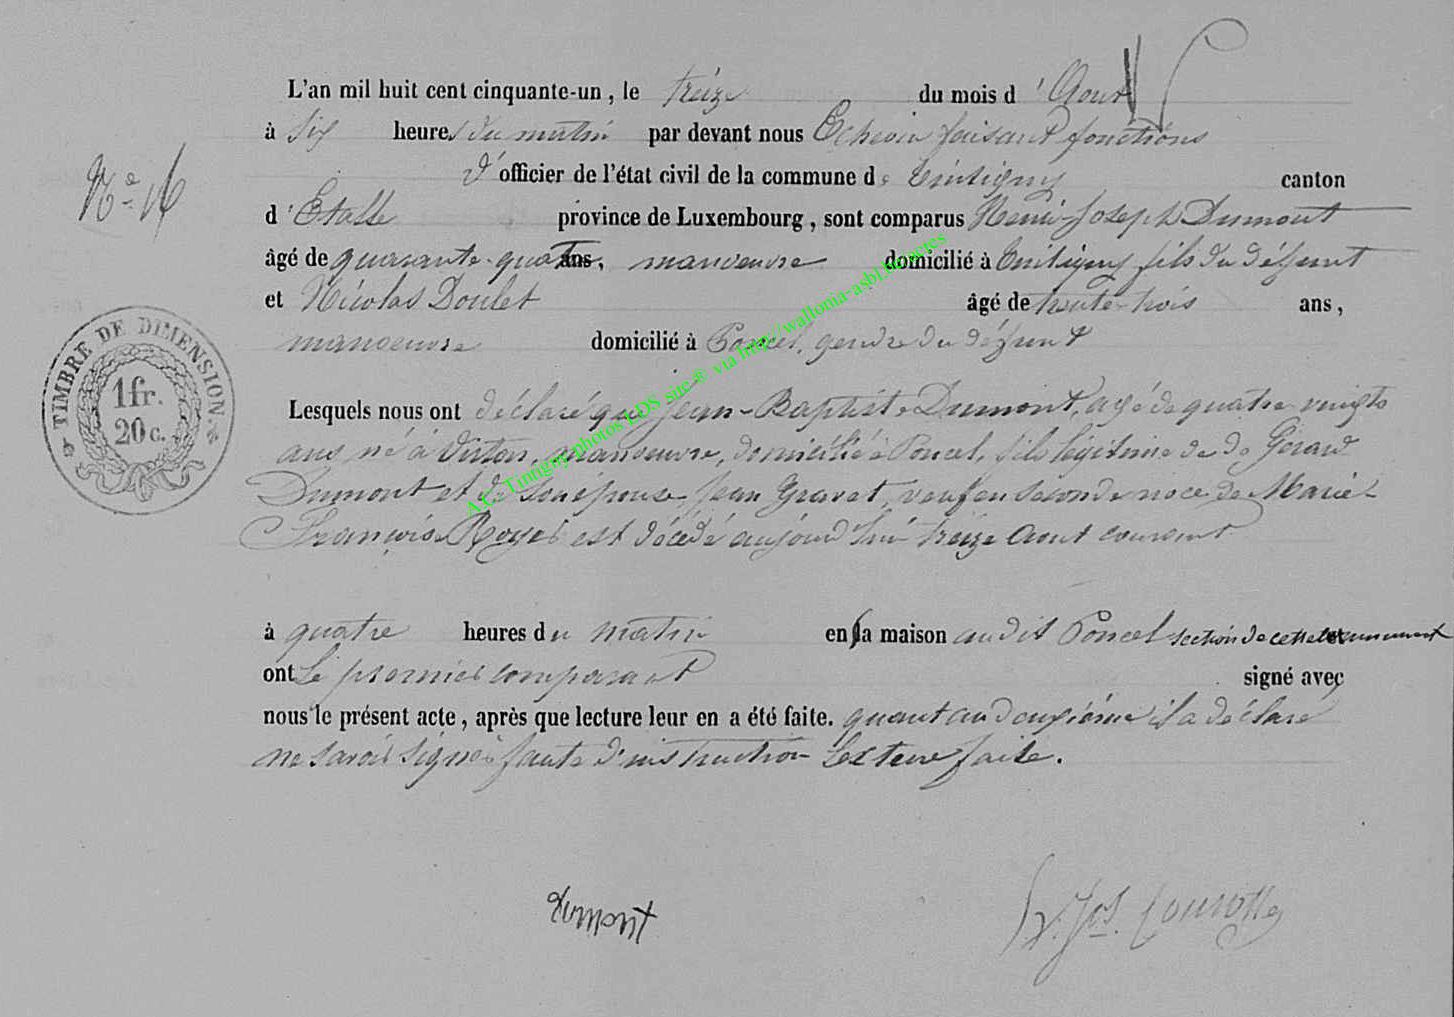 L'an mil huit cent cinquante-un, le treize du mois d'Aout
à six heures du matin par devant nous Echevin faisant fonctions
N° 16
d'officier de l'état civil de la commune de Tintigny canton
d'Etalle province de Luxembourg, sont comparus Henri-Joseph Dumont
âgé de quarante-quatre ans, manoeuvre domicilié à Tintigny fils du défunt
et Nicolas Doulet âgé de trente-trois ans,
manoeuvre domicilié à Poncel, gendre du défunt
TIMBRE DE DIMENSION
1 fr.
20 c.
Lesquels nous ont déclaré que Jean-Baptiste Dumont, agé de quatre vingts
ans né à Virton, manoeuvre, domicilié à Poncel, fils légitime de de Gerard
Dumont et de son épouse Jean Gravet, veuf en seconde noce de Marie-
François Royer est décédé aujourd'hui treize Aout courant
à quatre heures du matin en sa maison audit Poncel section de cette commune et
ont le premier comparant signé avec
nous le présent acte, après que lecture leur en a été faite. quant au deuxième il a déclaré
ne savoir signer faute d'instruction Lecture faite.
Dumont
A.C. Tintigny-photos LDS site® via http://wallonia-asbl.be/actes